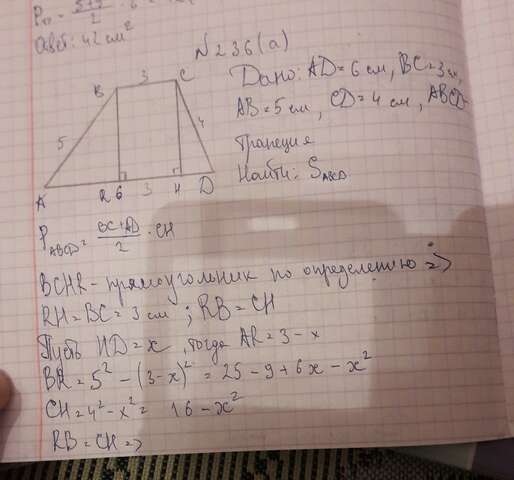 P = (5+9)/2 · 6 =
Ответ: 42 см²
N 236(а)
Дано: AD = 6 см, BC = 3 см,
AB = 5 см, CD = 4 см, ABCD
трапеция
Найти: S_ABCD
B 3 C
5 4
A R 6 3 H D
P_ABCD = (BC+AD)/2 · CH
BCHR - прямоугольник по определению =>
RH = BC = 3 см; RB = CH
Пусть HD = x, тогда AR = 3 - x
BR = 5² - (3-x)² = 25 - 9 + 6x - x²
CH = 4² - x² = 16 - x²
RB = CH =>